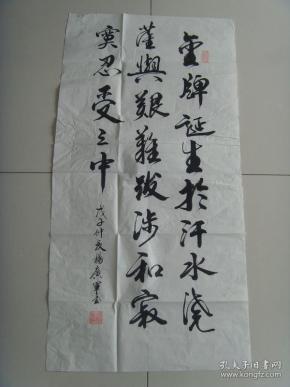 金牌诞生於汗水浇
灌與艱難跋涉和寂
寞忍受之中
戊子仲夏楊廣軍書
孔夫子旧书网